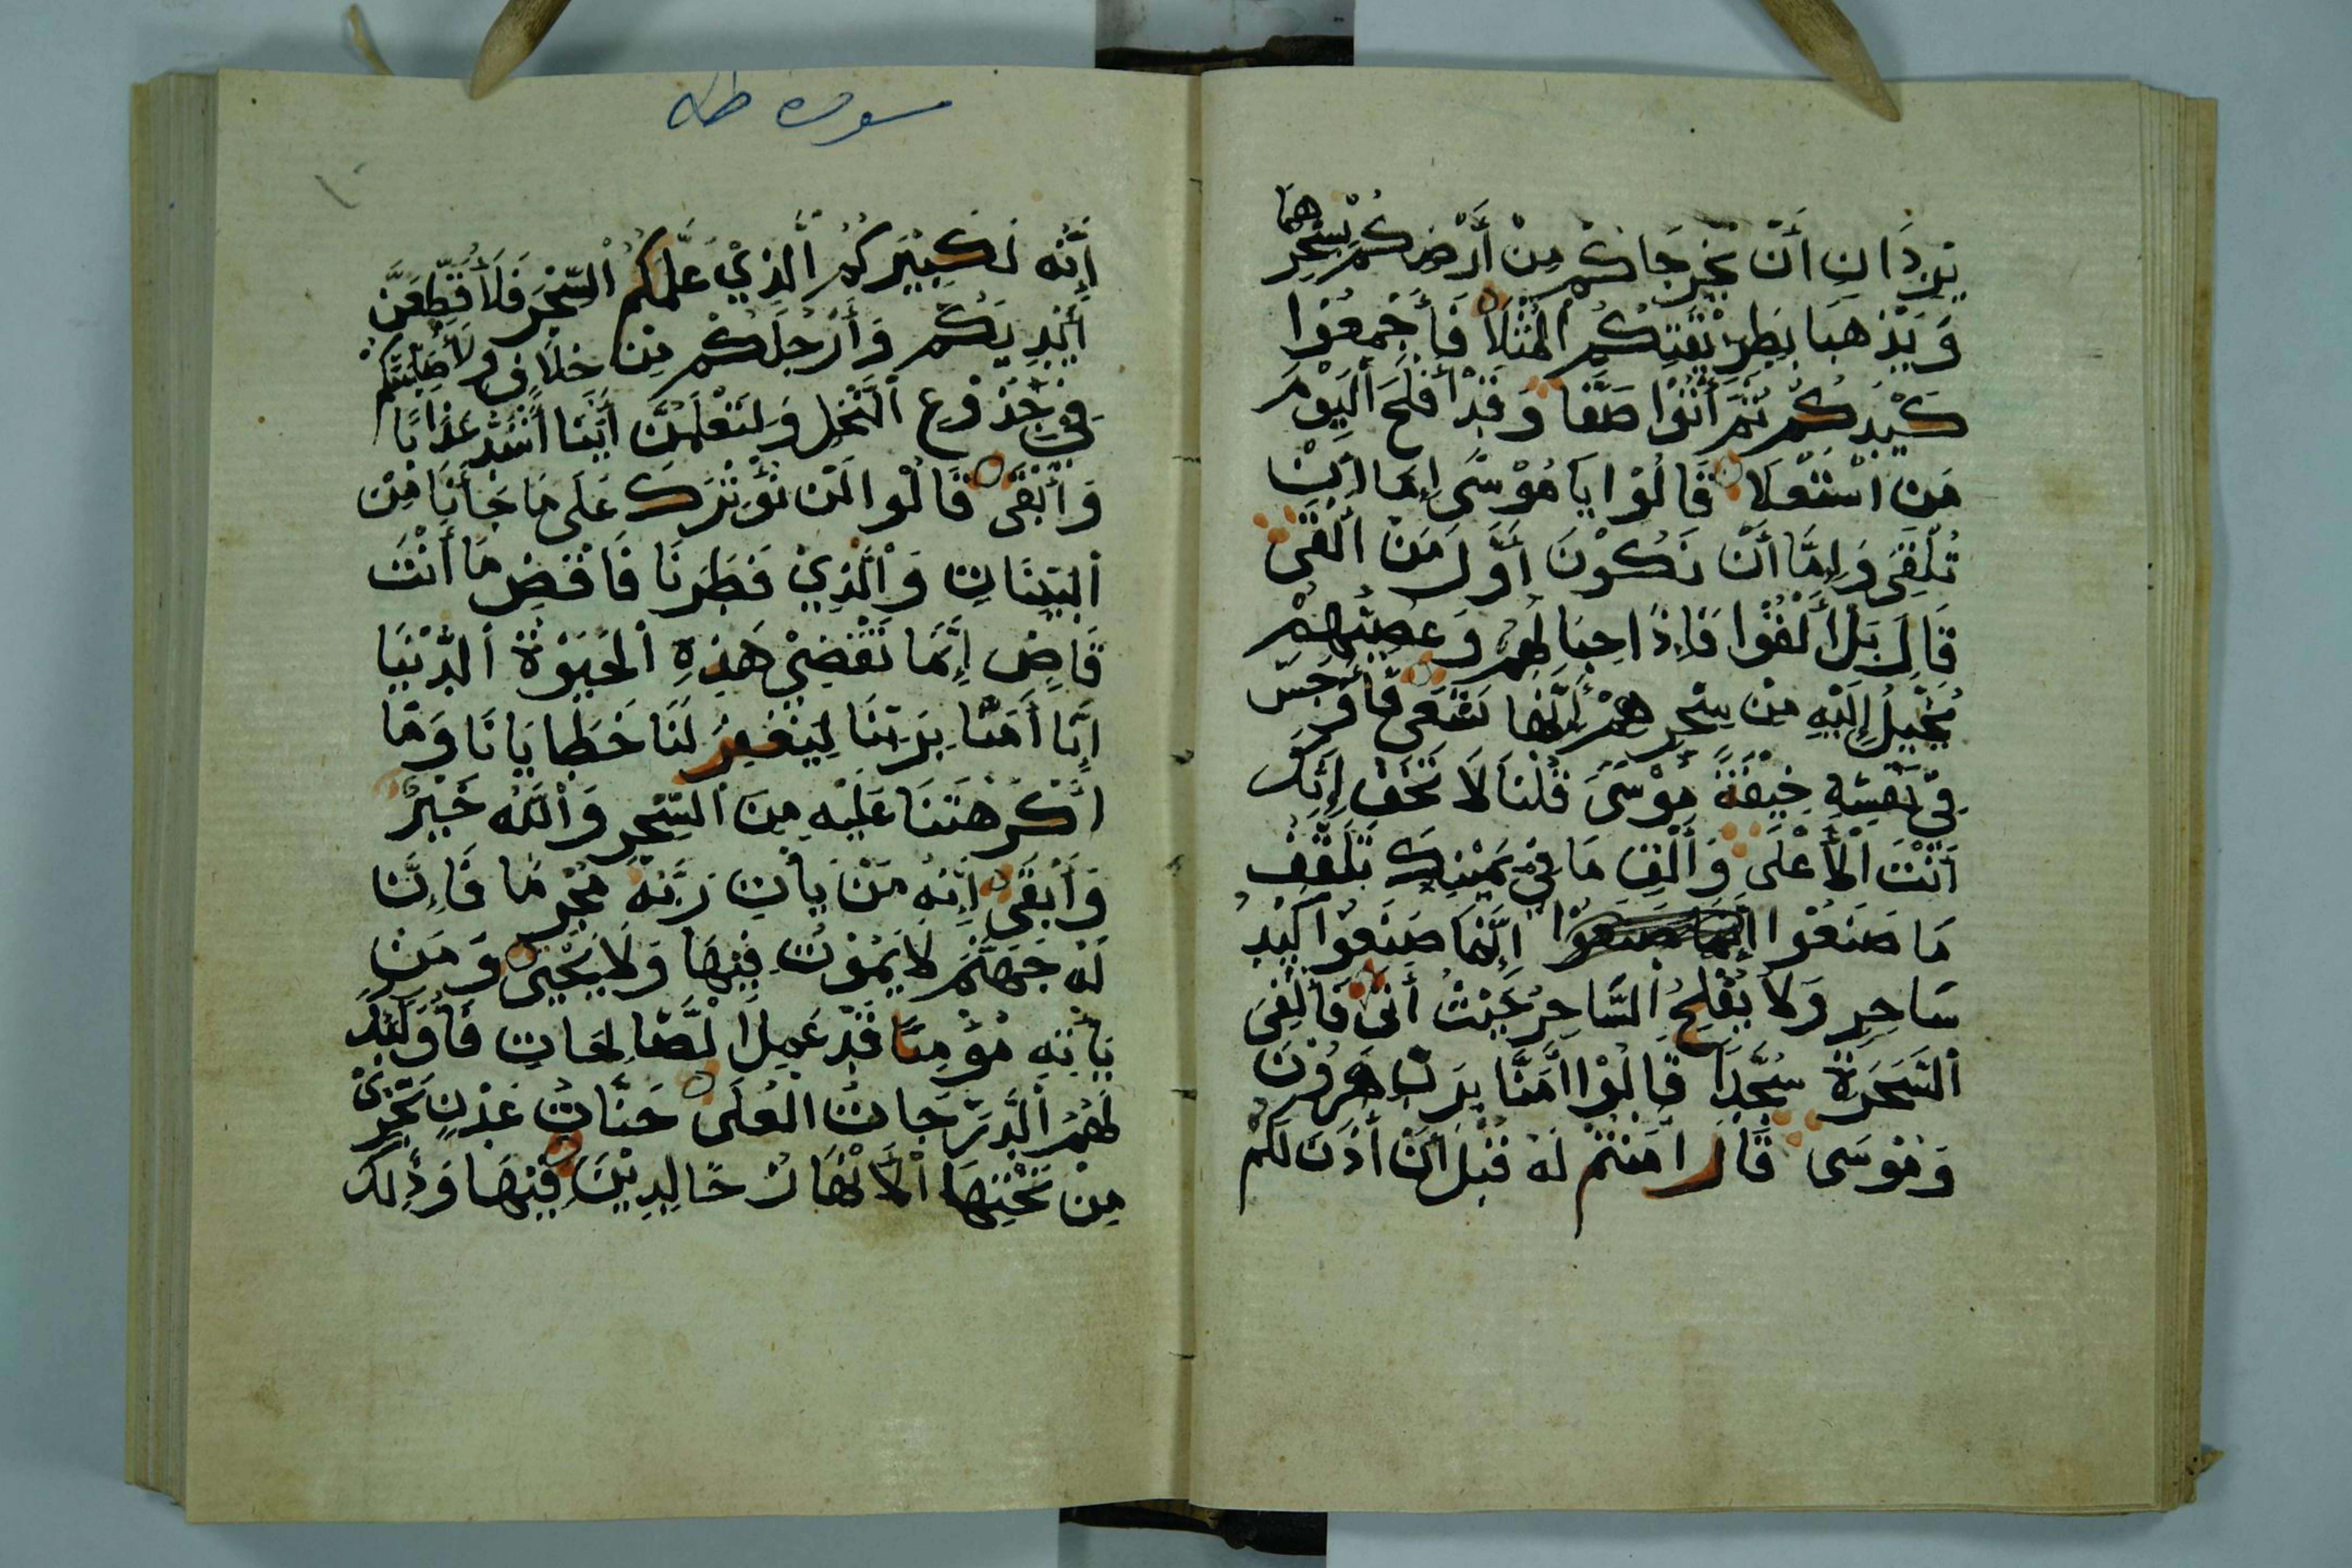 يُرِيدَانِ أَنْ يُخْرِجَاكُمْ مِنْ أَرْضِكُمْ بِسِحْرِهِمَا
وَيَذْهَبَا بِطَرِيْقَتِكُمُ الْمُثْلَا فَأَجْمِعُوْا
كَيْدَكُمْ ثُمَّ أْتُوْا صَفًّا وَقَدْ أَفْلَحَ الْيَوْمَ
مَنْ اسْتَعْلَا قَالُوْا يَا مُوْسَى إِمَّا أَنْ
تُلْقِيَ وَإِمَّا أَنْ نَكُوْنَ أَوَّلَ مَنْ أَلْقَى
قَالَ بَلْ أَلْقُوْا فَإِذَا حِبَالُهُمْ وَعِصِيُّهُمْ
يُخَيَّلُ إِلَيْهِ مِنْ سِحْرِهِمْ أَنَّهَا تَسْعَى فَأَوْجَسَ
فِيْ نَفْسِهِ خِيْفَةً مُوْسَى قُلْنَا لَا تَخَفْ إِنَّكَ
أَنْتَ الْأَعْلَى وَأَلْقِ مَا فِيْ يَمِيْنِكَ تَلْقَفْ
مَا صَنَعُوْا إِنَّمَا صَنَعُوْا إِنَّمَا صَنَعُوْا كَيْدُ
سَاحِرٍ وَلَا يُفْلِحُ السَّاحِرُ حَيْثُ أَتَى فَأُلْقِيَ
السَّحَرَةُ سُجَّدًا قَالُوْا اٰمَنَّا بِرَبِّ هَرُوْنَ
وَمُوْسَى قَالَ اٰمَنْتُمْ لَهُ قَبْلَ أَنْ اٰذَنَ لَكُمْ
سورة طه
إِنَّهُ لَكَبِيْرُكُمُ الَّذِيْ عَلَّمَكُمُ السِّحْرَ فَلَأُقَطِّعَنَّ
أَيْدِيَكُمْ وَأَرْجُلَكُمْ مِنْ خِلَافٍ وَلَأُصَلِّبَنَّكُمْ
فِيْ جُذُوْعِ النَّخْلِ وَلَتَعْلَمُنَّ أَيُّنَا أَشَدُّ عَذَابًا
وَأَبْقَى قَالُوْا لَنْ نُؤْثِرَكَ عَلَى مَا جَاءَنَا مِنْ
الْبَيِّنَاتِ وَالَّذِيْ فَطَرَنَا فَاقْضِ مَا أَنْتَ
قَاضٍ إِنَّمَا تَقْضِيْ هَذِهِ الْحَيَوةَ الدُّنْيَا
إِنَّا اٰمَنَّا بِرَبِّنَا لِيَغْفِرَ لَنَا خَطَايَانَا وَمَا
أَكْرَهْتَنَا عَلَيْهِ مِنَ السِّحْرِ وَاللَّهُ خَيْرٌ
وَأَبْقَى إِنَّهُ مَنْ يَأْتِ رَبَّهُ مُجْرِمًا فَإِنَّ
لَهُ جَهَنَّمَ لَا يَمُوْتُ فِيْهَا وَلَا يَحْيَى وَمَنْ
يَأْتِهِ مُؤْمِنًا قَدْ عَمِلَ الصَّالِحَاتِ فَأُوْلَئِكَ
لَهُمُ الدَّرَجَاتُ الْعُلَى جَنَّاتُ عَدْنٍ تَجْرِيْ
مِنْ تَحْتِهَا الْأَنْهَارُ خَالِدِيْنَ فِيْهَا وَذَلِكَ